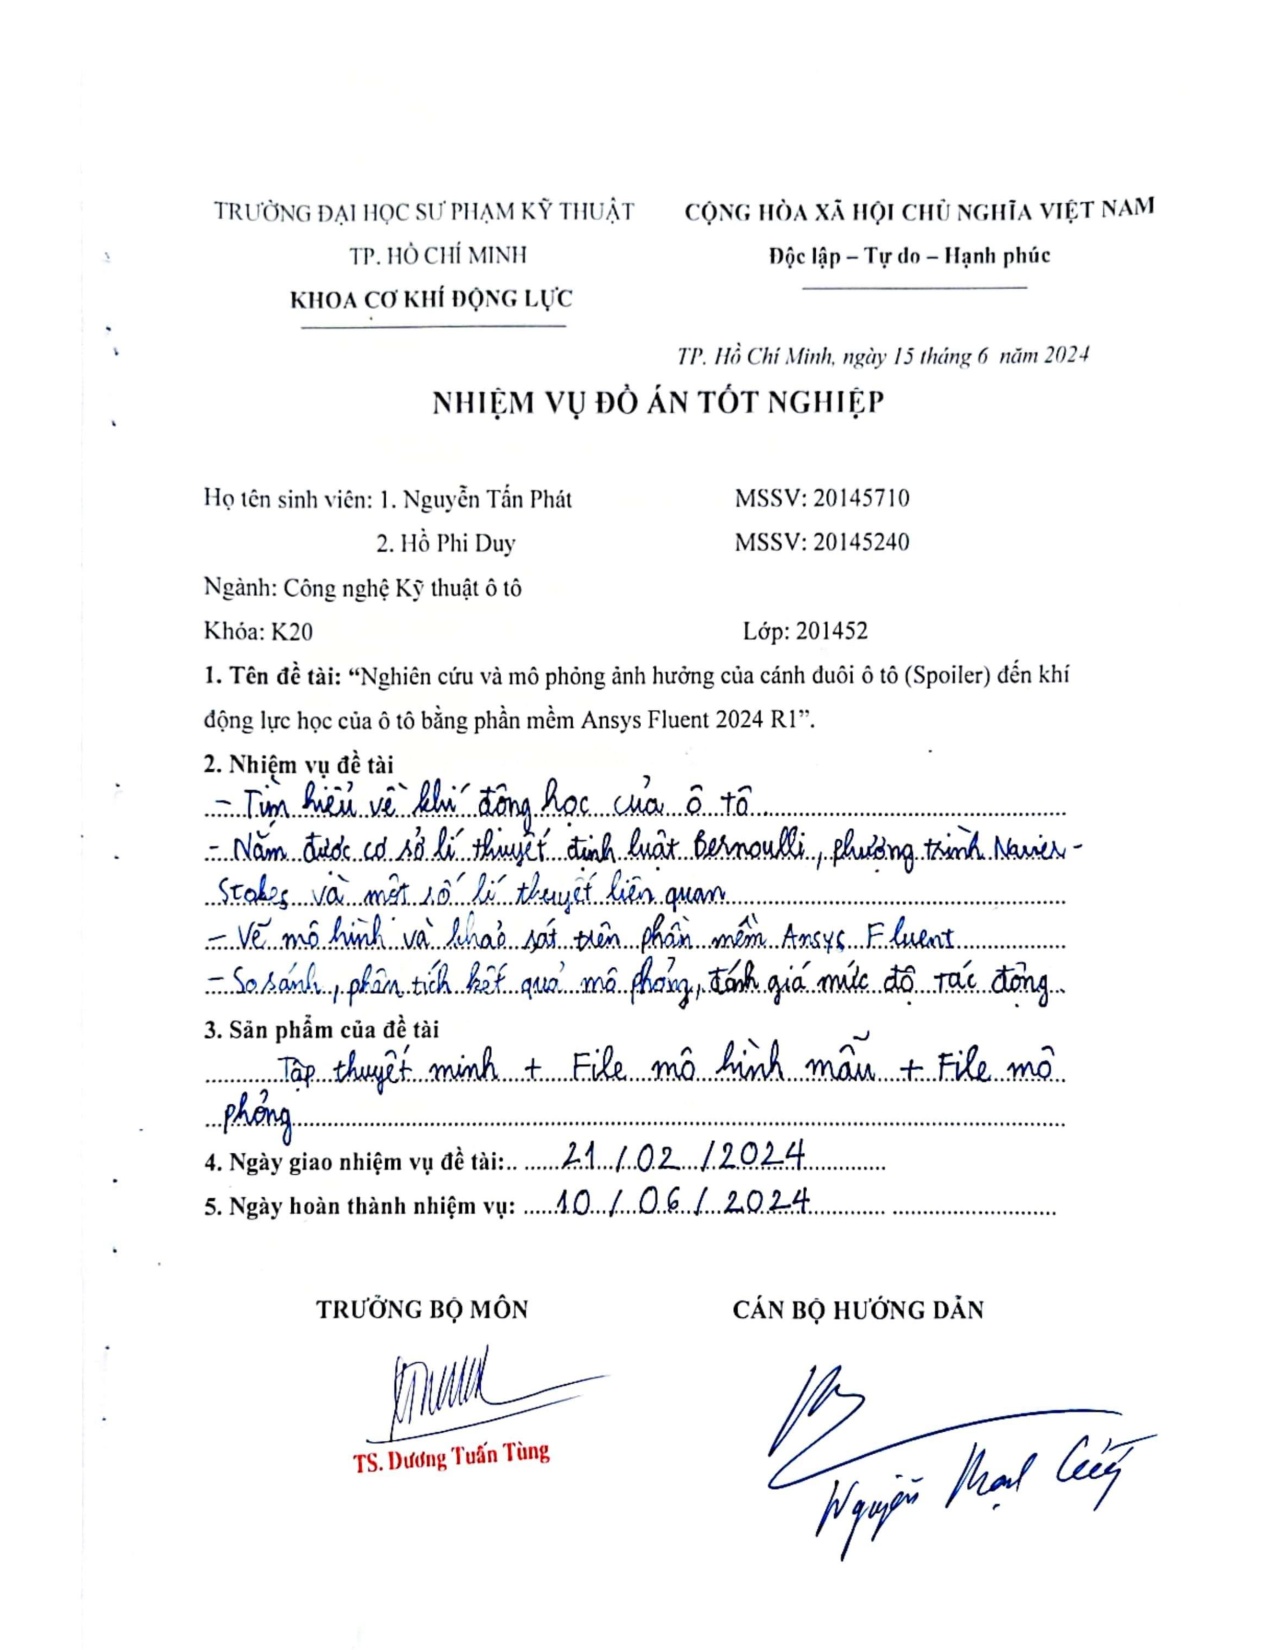 TRƯỜNG ĐẠI HỌC SƯ PHẠM KỸ THUẬT
TP. HỒ CHÍ MINH
KHOA CƠ KHÍ ĐỘNG LỰC
CỘNG HÒA XÃ HỘI CHỦ NGHĨA VIỆT NAM
Độc lập – Tự do – Hạnh phúc
TP. Hồ Chí Minh, ngày 15 tháng 6 năm 2024
NHIỆM VỤ ĐỒ ÁN TỐT NGHIỆP
Họ tên sinh viên: 1. Nguyễn Tấn Phát MSSV: 20145710
2. Hồ Phi Duy MSSV: 20145240
Ngành: Công nghệ Kỹ thuật ô tô
Khóa: K20 Lớp: 201452
1. Tên đề tài: “Nghiên cứu và mô phỏng ảnh hưởng của cánh đuôi ô tô (Spoiler) đến khí
động lực học của ô tô bằng phần mềm Ansys Fluent 2024 R1”.
2. Nhiệm vụ đề tài
- Tìm hiểu về khí động học của ô tô
- Nắm được cơ sở lí thuyết định luật Bernoulli, phương trình Navier-
Stokes và một số lí thuyết liên quan
- Vẽ mô hình và khảo sát trên phần mềm Ansys Fluent
- So sánh, phân tích kết quả mô phỏng, đánh giá mức độ tác động
3. Sản phẩm của đề tài
Tập thuyết minh + File mô hình mẫu + File mô
phỏng
4. Ngày giao nhiệm vụ đề tài: 21/02/2024
5. Ngày hoàn thành nhiệm vụ: 10/06/2024
TRƯỞNG BỘ MÔN
CÁN BỘ HƯỚNG DẪN
TS. Dương Tuấn Tùng
Nguyễn Mạnh